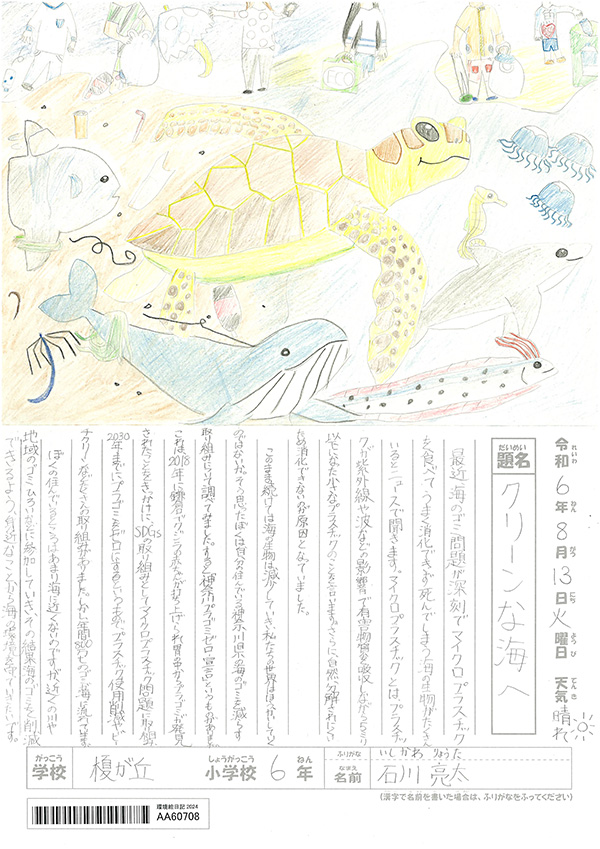 令和6年8月13日火曜日 天気 晴れ
れいわ ねん がつ にち ようび てんき
だいめい
題名 クリーンな海へ
最近海のゴミ問題が深刻でマイクロプラスチック
を食べてうまく消化できず死んでしまう海の生物がたくさん
いるとニュースで聞きます。マイクロプラスチックとは、プラスチッ
クが紫外線や波などの影響で有害物質を吸収しながら5ミリ
以下になった小さなプラスチックのことを言います。さらに自然分解されにくい
ため消化できないのが原因となっていました。
このまま続けては海の生物は減少していき、私たちの世界は
のではないか。そう思ったぼくは自分の住んでいる神奈川県の海のゴミを減らす
取り組みについて調べてみました。すると「神奈川プラゴミゼロ宣言」というものがありました。
これは2018年に鎌倉でシロナガスクジラの赤ちゃんが打ち上げられ胃の中からプラゴミが発見
されたことをきっかけに、SDGsの取り組みとしてマイクロプラスチック問題に取り組み
2030年までにプラゴミをゼロにするというものです。プラスチック使用削減や
クリーンなどたくさんの取り組みがありました。しかし年間800万tものゴミが海に流れています。
ぼくの住んでいるところはあまり海に近くないのですが、近くの川や
地域のゴミひろいなどに参加していき、その結果海のゴミを削減
できるよう、身近なことから海の環境を守っていきたいです。
がっこう しょうがっこう ねん ふりがな いしかわ りょうた
学校 榎が丘 小学校 6年 なまえ 名前 石川 亮太
(漢字で名前を書いた場合は、ふりがなをふってください)
環境絵日記 2024
AA60708